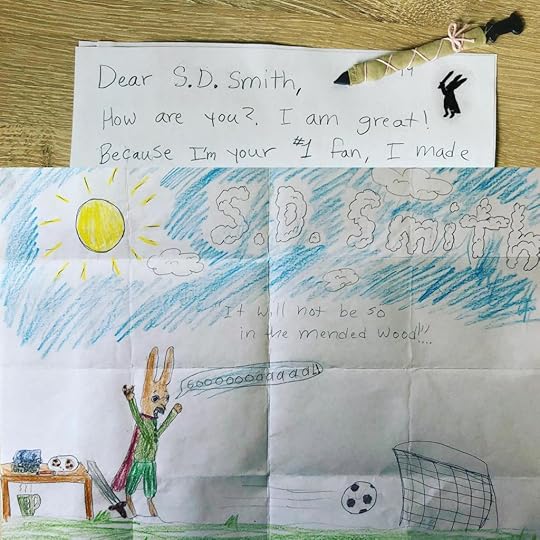 Dear S.D. Smith,
How are you?. I am great!
Because I'm your #1 fan, I made
S.D. Smith
"It will not be so
in the mended wood!"...